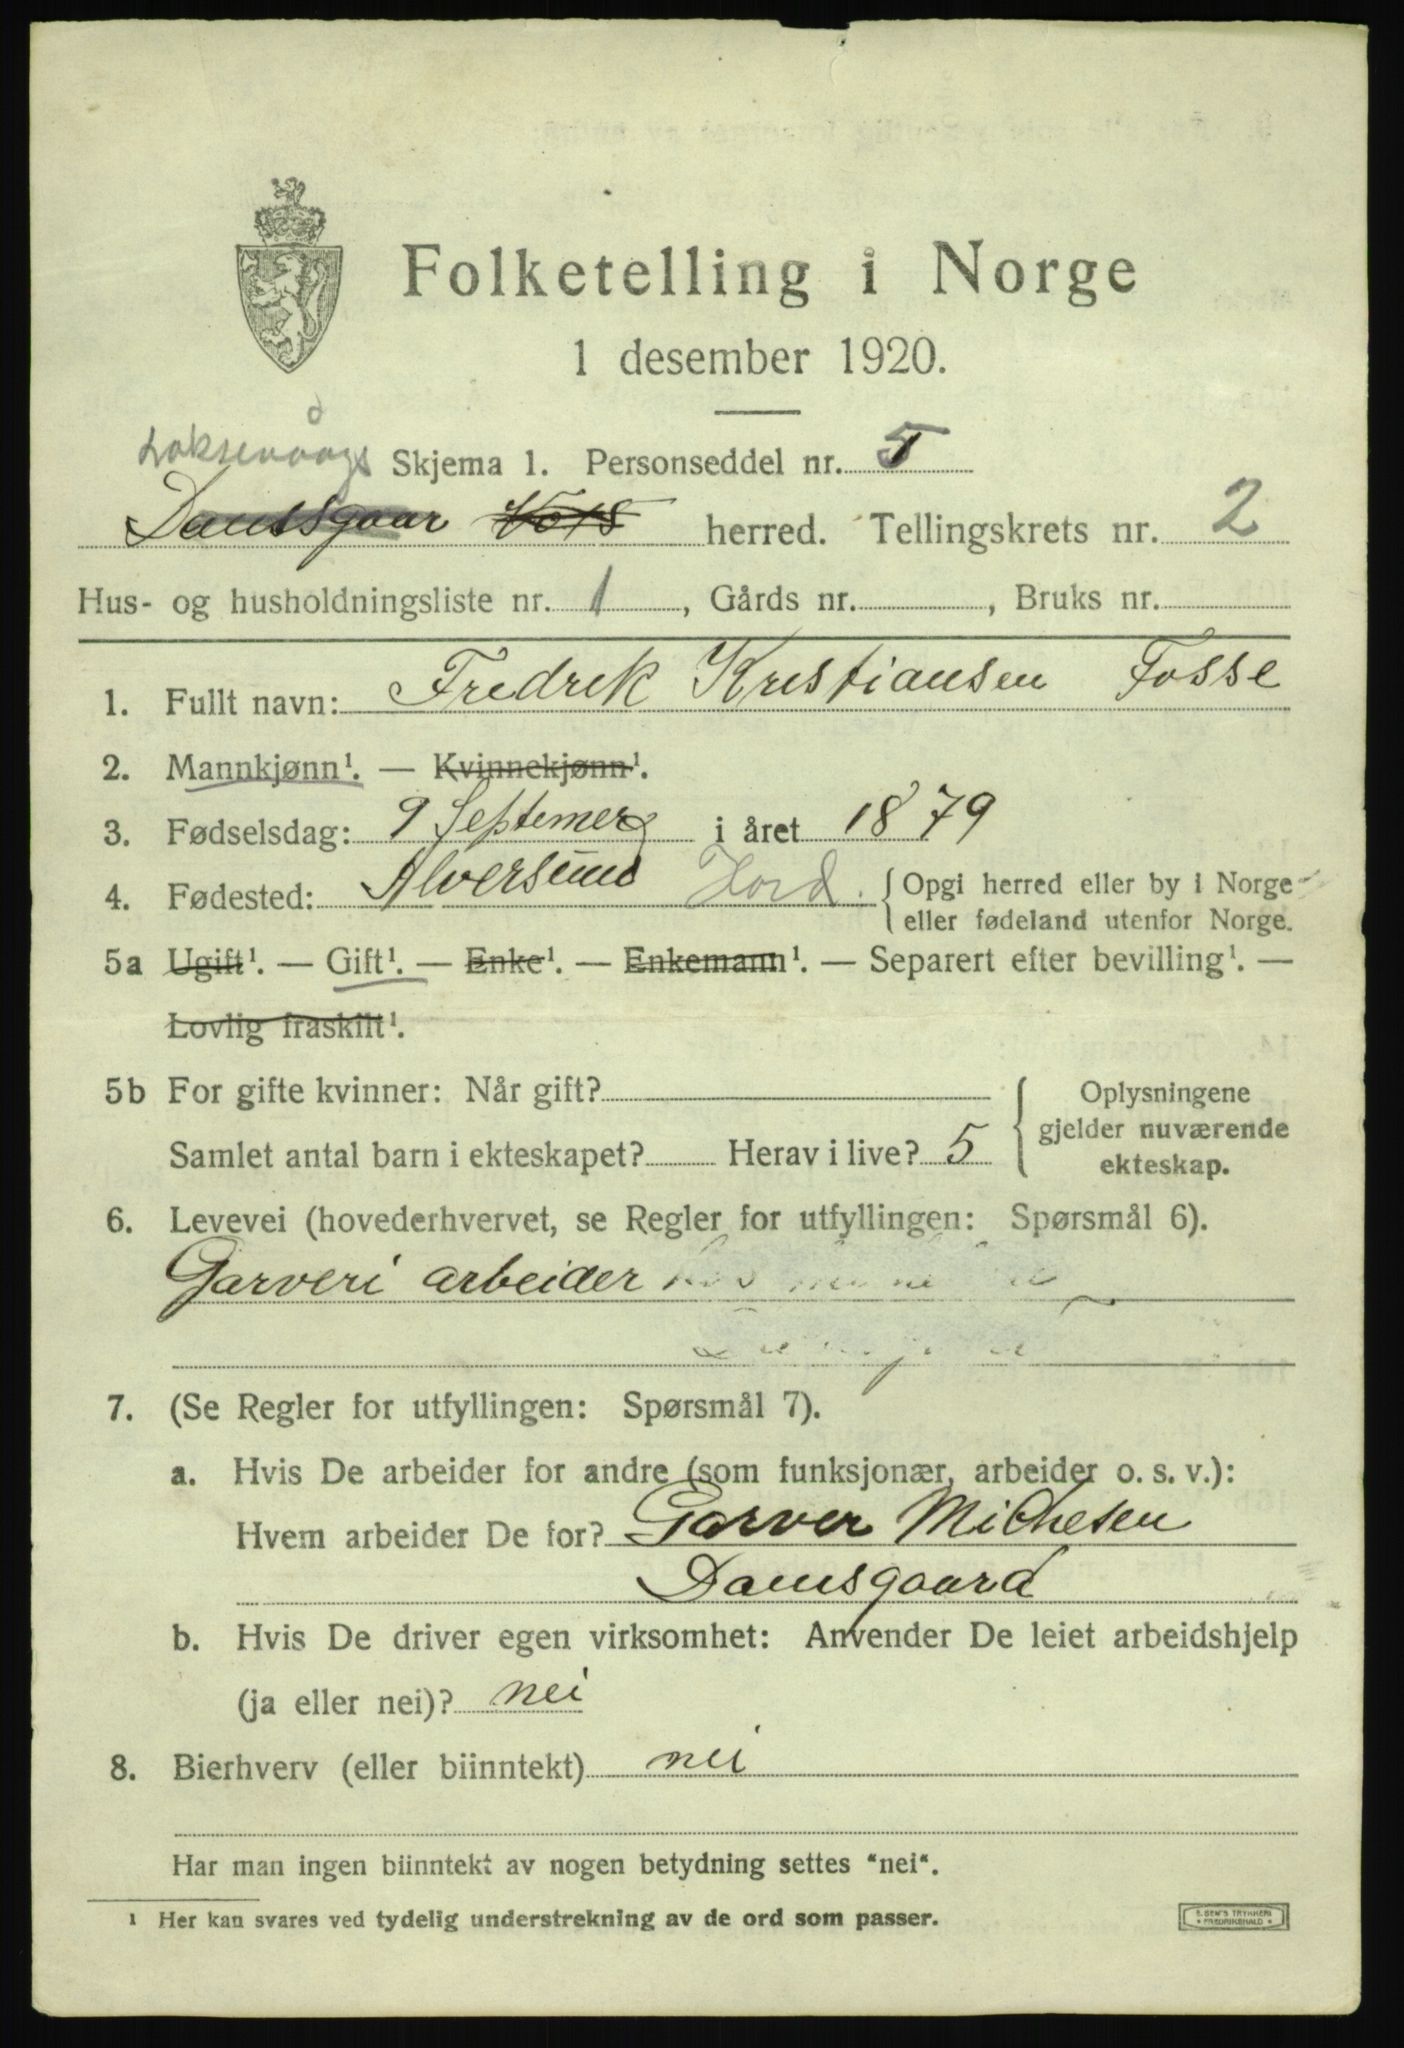 Folketelling i Norge
1 desember 1920.
Laksevågs Skjema 1. Personseddel nr. 5
Damsgaar herred. Tellingskrets nr. 2
Hus- og husholdningsliste nr. 1, Gårds nr. , Bruks nr.
1. Fullt navn: Fredrik Kristiansen Fosse
2. Mannkjønn¹. — Kvinnekjønn¹.
3. Fødselsdag: 9 Septemer i året 1879
4. Fødested: Alversund Hord. { Opgi herred eller by i Norge
eller fødeland utenfor Norge.
5a Ugift¹. — Gift¹. — Enke¹. — Enkemann¹. — Separert efter bevilling¹. —
Lovlig fraskilt¹.
5b For gifte kvinner: Når gift?
Samlet antal barn i ekteskapet? Herav i live? 5
{ Oplysningene
gjelder nuværende
ekteskap.
6. Levevei (hovederhvervet, se Regler for utfyllingen: Spørsmål 6).
Garveri arbeider hos
7. (Se Regler for utfyllingen: Spørsmål 7).
a. Hvis De arbeider for andre (som funksjonær, arbeider o. s. v.):
Hvem arbeider De for? Garver Michesen
Damsgaard
b. Hvis De driver egen virksomhet: Anvender De leiet arbeidshjelp
(ja eller nei)? nei
8. Bierhverv (eller biinntekt) nei
Har man ingen biinntekt av nogen betydning settes "nei".
¹ Her kan svares ved tydelig understrekning av de ord som passer.
E. SEM'S TRYKKERI
* FREDRIKSHALD *